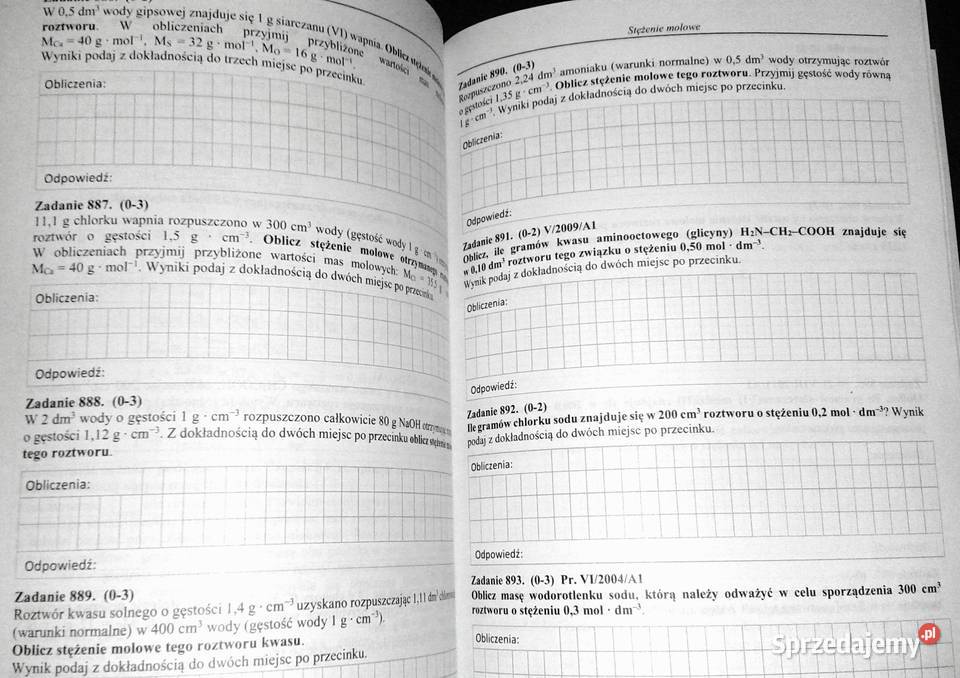 W 0,5 dm³ wody gipsowej znajduje się 1 g siarczanu (VI) wapnia. Oblicz stężenie
roztworu. W obliczeniach przyjmij przybliżone wartości mas
M_Ca = 40 g · mol⁻¹, M_S = 32 g · mol⁻¹, M_O = 16 g · mol⁻¹.
Wyniki podaj z dokładnością do trzech miejsc po przecinku.
Obliczenia:
Odpowiedź:
Zadanie 887. (0-3)
11,1 g chlorku wapnia rozpuszczono w 300 cm³ wody (gęstość wody 1 g · cm⁻³)
roztwór o gęstości 1,5 g · cm⁻³. Oblicz stężenie molowe otrzymanego
W obliczeniach przyjmij przybliżone wartości mas molowych: M_Cl = 35,5 g
M_Ca = 40 g · mol⁻¹. Wyniki podaj z dokładnością do dwóch miejsc po przecinku.
Obliczenia:
Odpowiedź:
Zadanie 888. (0-3)
W 2 dm³ wody o gęstości 1 g · cm⁻³ rozpuszczono całkowicie 80 g NaOH otrzymując
o gęstości 1,12 g · cm⁻³. Z dokładnością do dwóch miejsc po przecinku oblicz stężenie
tego roztworu.
Obliczenia:
Odpowiedź:
Zadanie 889. (0-3)
Roztwór kwasu solnego o gęstości 1,4 g · cm⁻³ uzyskano rozpuszczając 1,11 dm³
(warunki normalne) w 400 cm³ wody (gęstość wody 1 g · cm⁻³).
Oblicz stężenie molowe tego roztworu kwasu.
Wynik podaj z dokładnością do dwóch miejsc po przecinku.
Stężenie molowe
Zadanie 890. (0-3)
Rozpuszczono 2,24 dm³ amoniaku (warunki normalne) w 0,5 dm³ wody otrzymując roztwór
o gęstości 1,35 g · cm⁻³. Oblicz stężenie molowe tego roztworu. Przyjmij gęstość wody równą
1 g · cm⁻³. Wyniki podaj z dokładnością do dwóch miejsc po przecinku.
Obliczenia:
Odpowiedź:
Zadanie 891. (0-2) V/2009/A1
Oblicz, ile gramów kwasu aminooctowego (glicyny) H₂N–CH₂–COOH znajduje się
w 0,10 dm³ roztworu tego związku o stężeniu 0,50 mol · dm⁻³.
Wynik podaj z dokładnością do dwóch miejsc po przecinku.
Obliczenia:
Odpowiedź:
Zadanie 892. (0-2)
Ile gramów chlorku sodu znajduje się w 200 cm³ roztworu o stężeniu 0,2 mol · dm⁻³? Wynik
podaj z dokładnością do dwóch miejsc po przecinku.
Obliczenia:
Odpowiedź:
Zadanie 893. (0-3) Pr. VI/2004/A1
Oblicz masę wodorotlenku sodu, którą należy odważyć w celu sporządzenia 300 cm³
roztworu o stężeniu 0,3 mol · dm⁻³.
Obliczenia:
Sprzedajemy.pl